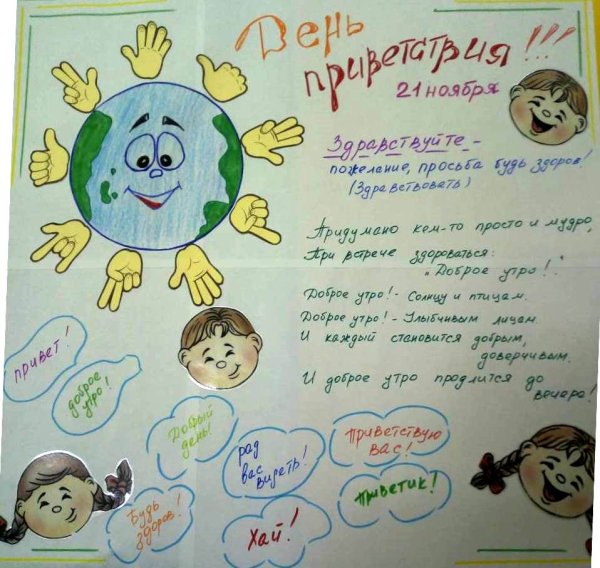 День
приветствия!!!
21 ноября
Здравствуйте -
пожелание, просьба будь здоров!
(Здравствовать)
Придумано кем-то просто и мудро,
При встрече здороваться:
"Доброе утро!".
Доброе утро! - Солнцу и птицам.
Доброе утро! - Улыбчивым лицам.
И каждый становится добрым,
доверчивым.
И доброе утро продлится до
вечера!
привет!
доброе
утро!
Добрый
день!
рад
вас
видеть!
Приветствую
вас!
Будь
здоров!
Хай!
Приветик!